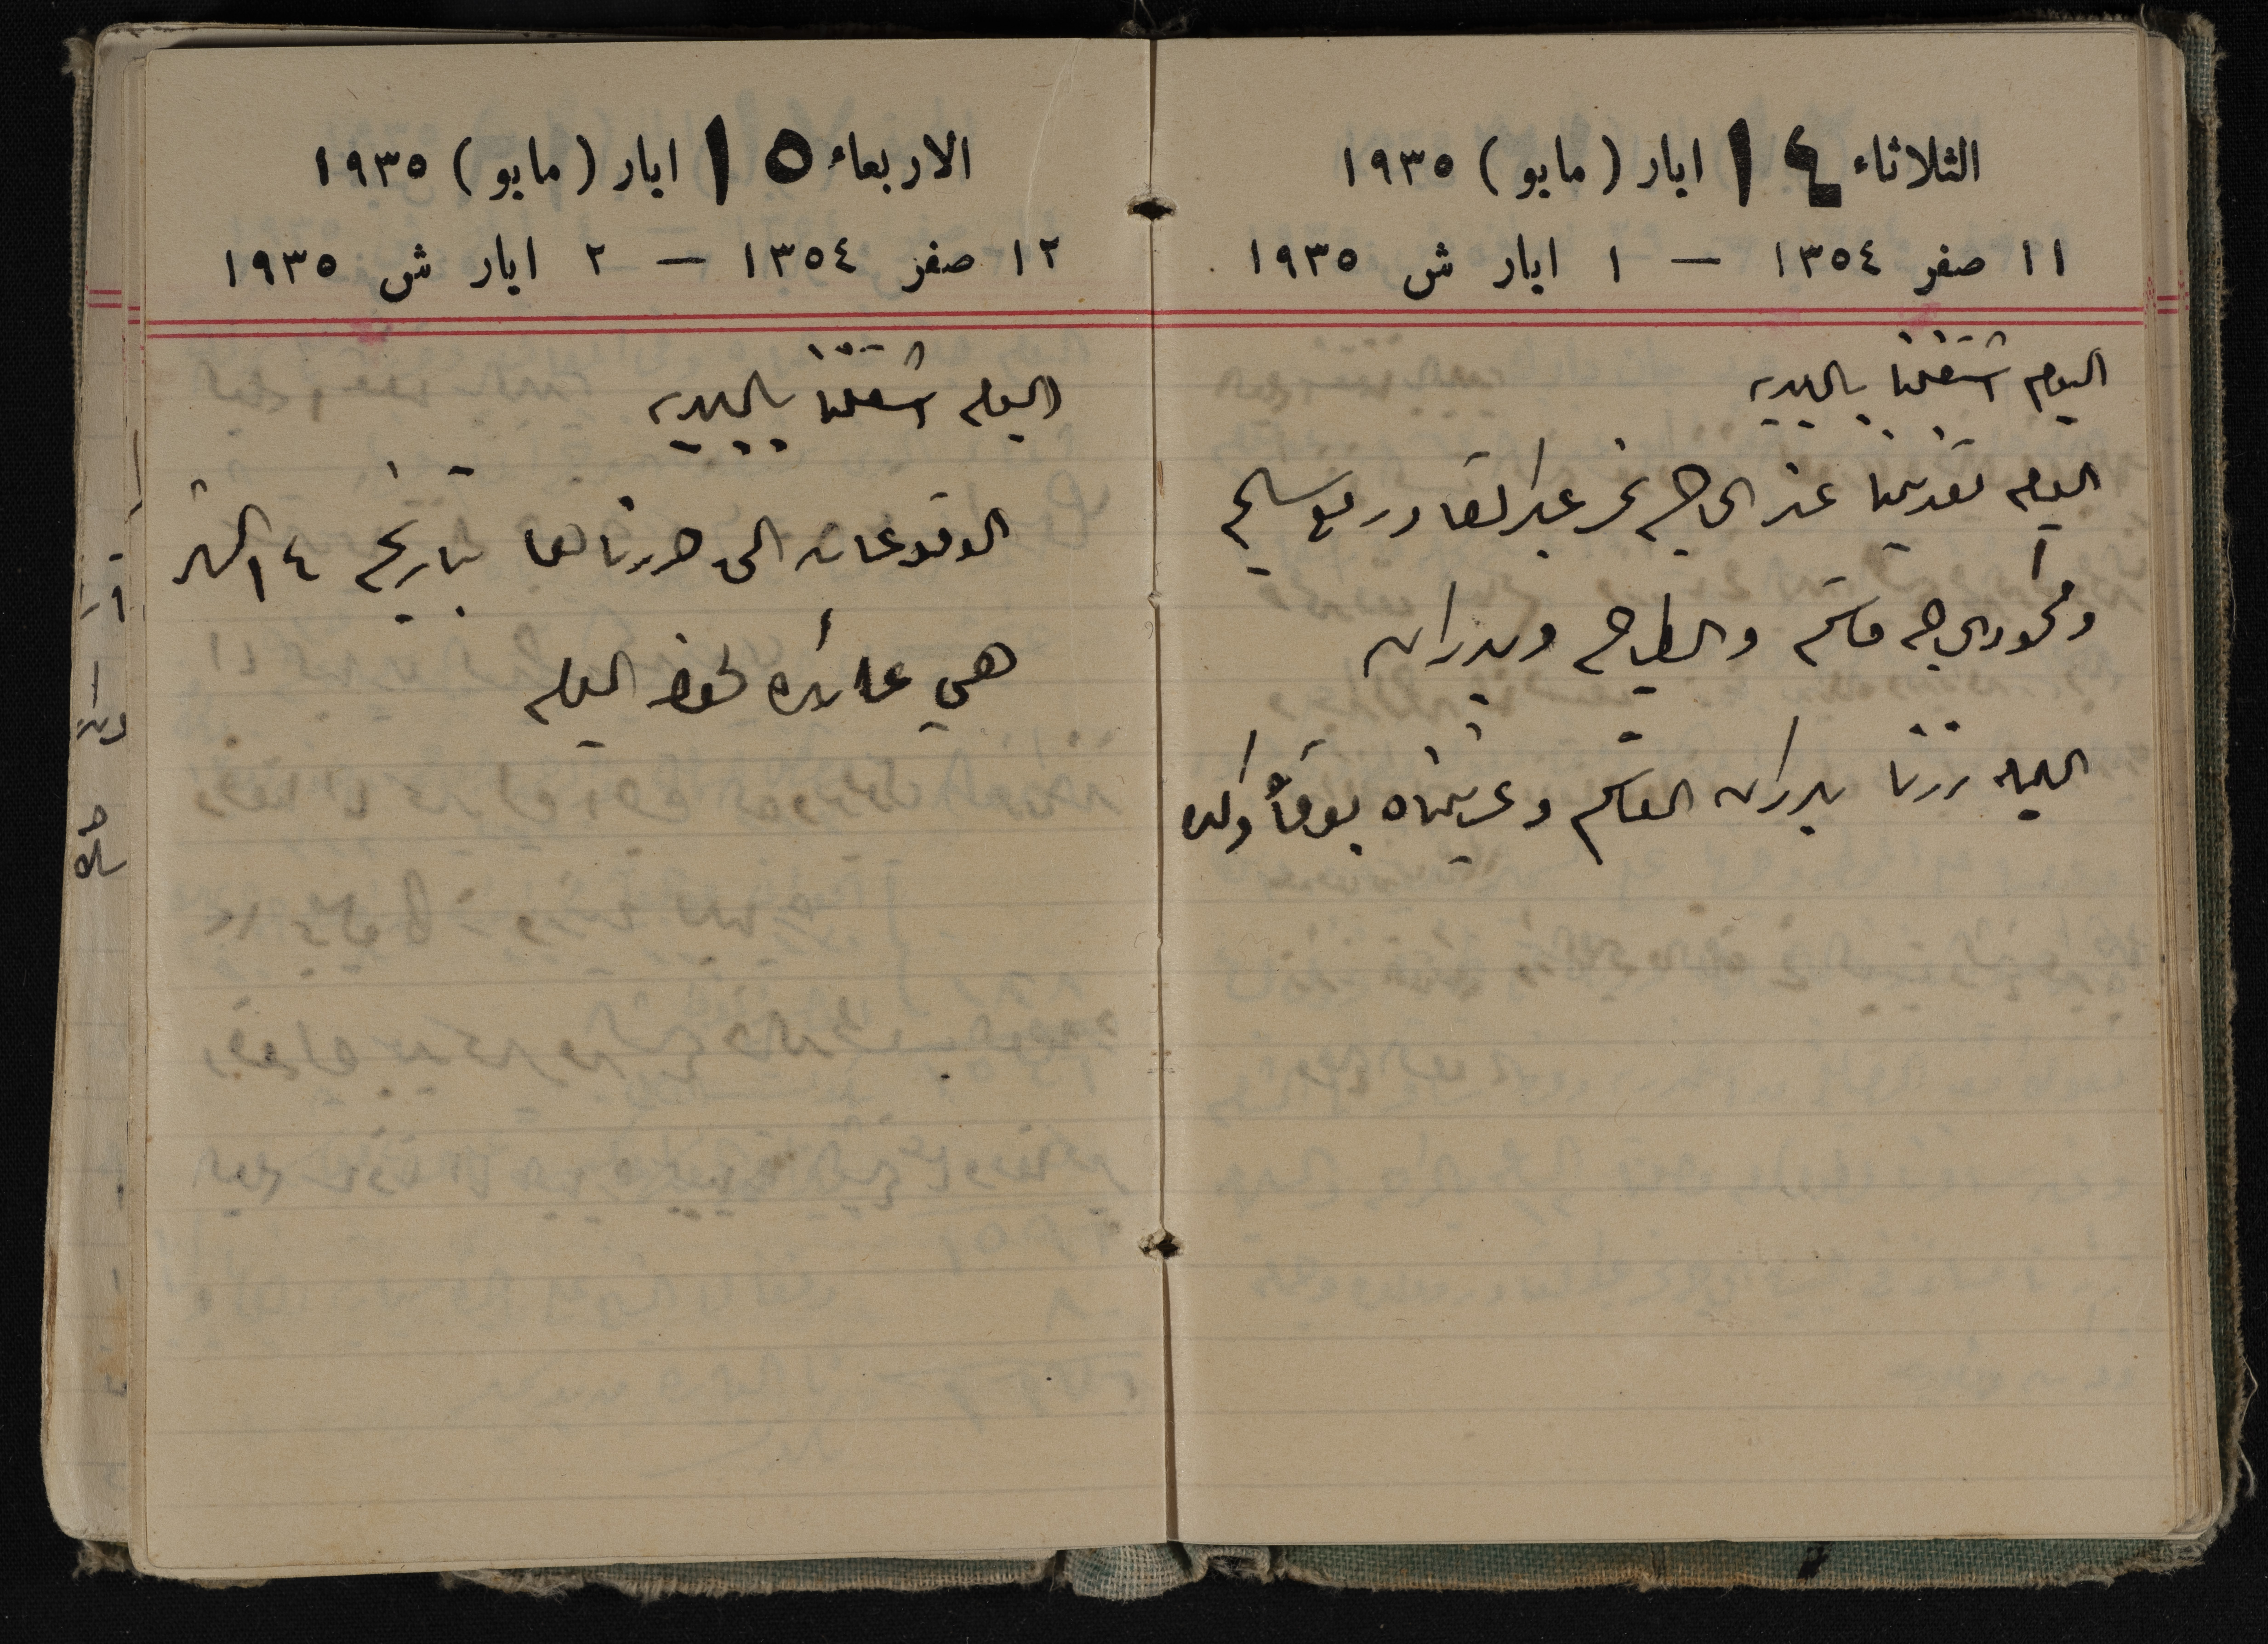 الثلاثاء ١٤ ايار (مايو) ١٩٣٥
١١ صفر ١٣٥٤ — ١ ايار ش ١٩٣٥
اليوم اشتغلنا بالبلديه
اليوم تغدينا عند الحاج نمر عبد القادر مع سليم
ومحمود الحاج قاسم والطباخ وبدران
الليله زرنا بدران القاسم وعزيناه بوفاة ولده
الاربعاء ١٥ ايار (مايو) ١٩٣٥
١٢ صفر ١٣٥٤ — ٢ ايار ش ١٩٣٥
اليوم اشتغلنا بالبلديه
الوقوعات التي حررناها بتاريخ ١٤ الشهر
هي عائده لهذا اليوم